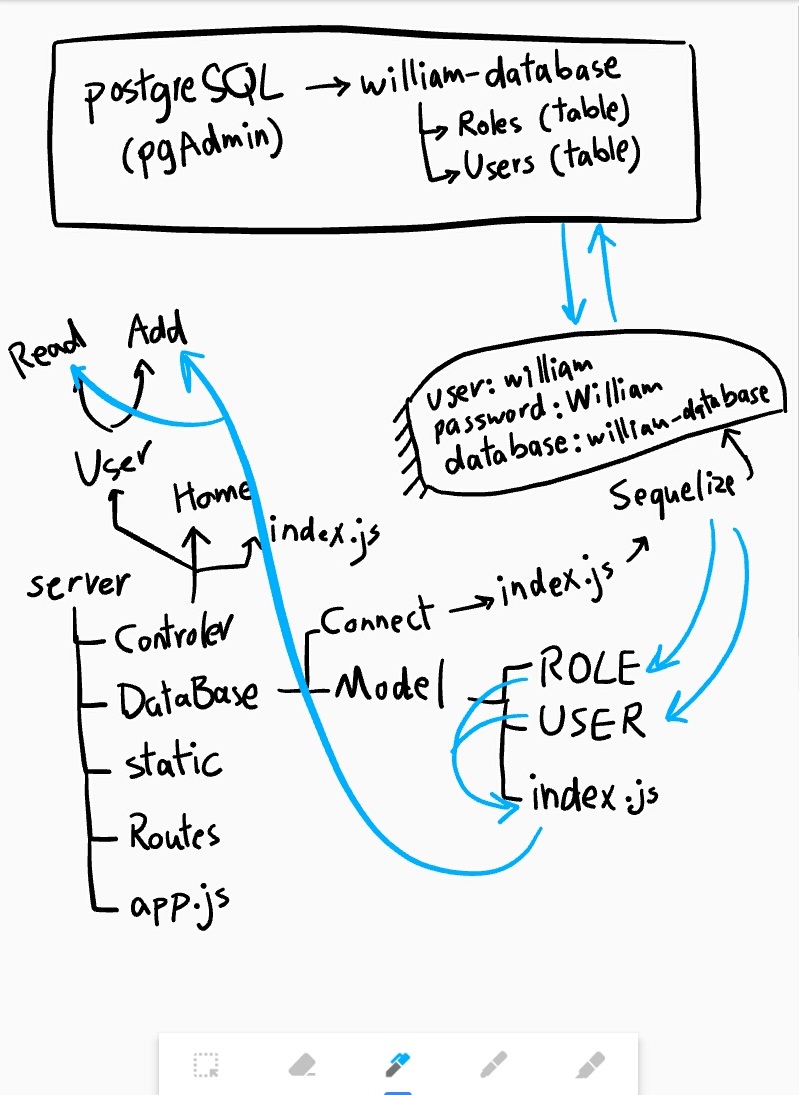 postgreSQL → william-database
(pgAdmin)
Roles (table)
Users (table)
user: william
password: William
database: willian-database
Sequelize
Read
Add
User
Home
index.js
server
Controler
DataBase
static
Routes
app.js
Connect → index.js
Model
ROLE
USER
index.js